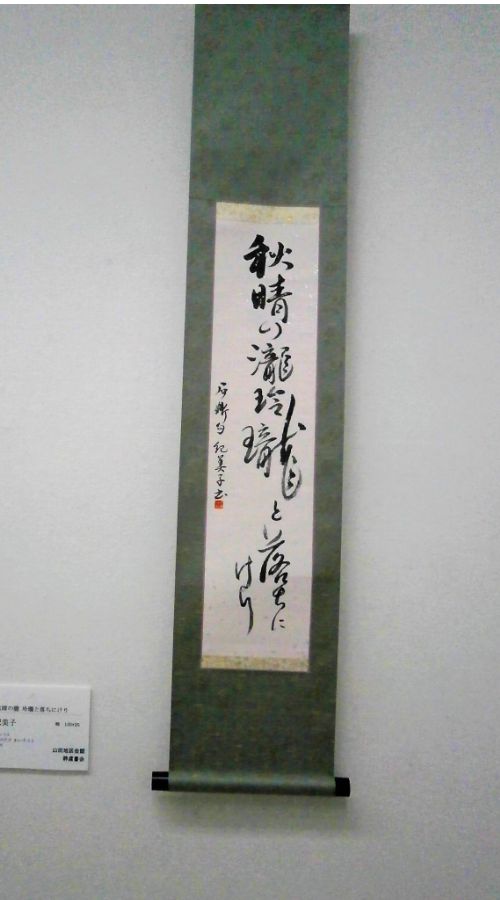 秋晴の瀧玲瓏と落ちに
けり
石鼎句 紀美子書
秋晴の瀧 玲瓏と落ちにけり
紀美子
山田地区会館